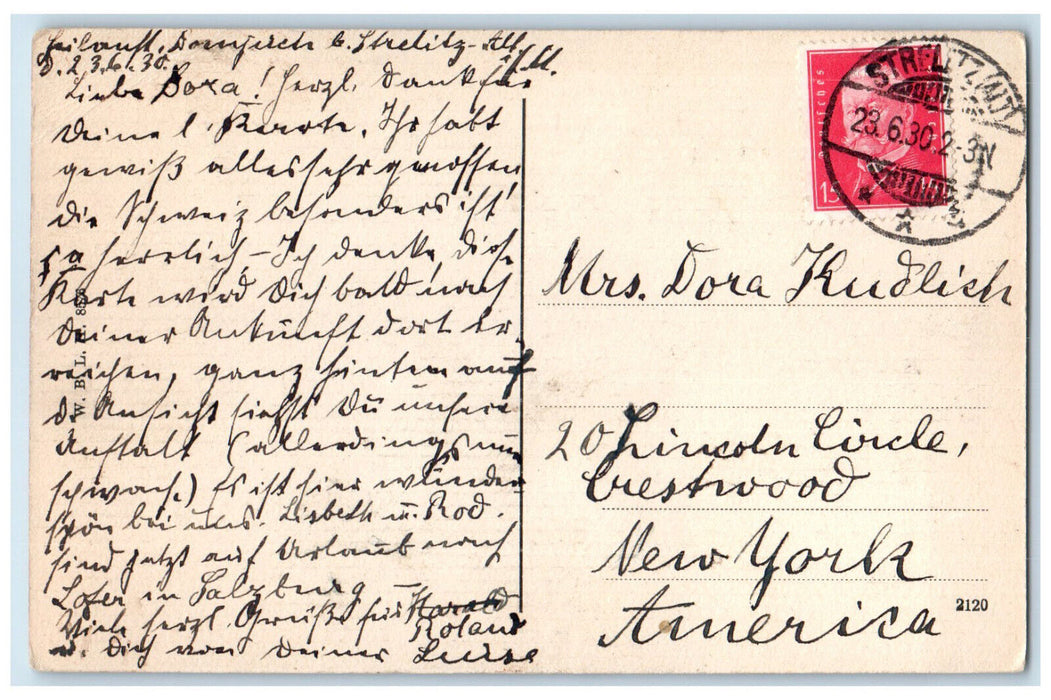 Heilanst. Domjüch b. Strelitz-Alt.
D. 23.6.30. i/M.
Liebe Dora! Herzl. Dank für
Deine l. Karte. Ihr habt
gewiß alles sehr genossen,
die Schweiz besonders ist
ja herrlich – Ich denke, diese
Karte wird Dich bald nach
Deiner Ankunft dort er-
reichen, ganz hinten auf
d. Ansicht siehst Du unsere
Anstalt (allerdings nur
schwach.) Es ist hier wunder
schön bei uns. Lisbeth u. Rod.
sind jetzt auf Urlaub nach
Lofer in Salzburg –
Viele herzl. Grüße für Harald
Roland
u. Dich von Deiner Luise
W. B. L.
Deutsches
15
STRELITZ (ALT)
23.6.30.2-3N
Mrs. Dora Kudlich
20 Lincoln Circle,
Crestwood
New York
America
2120